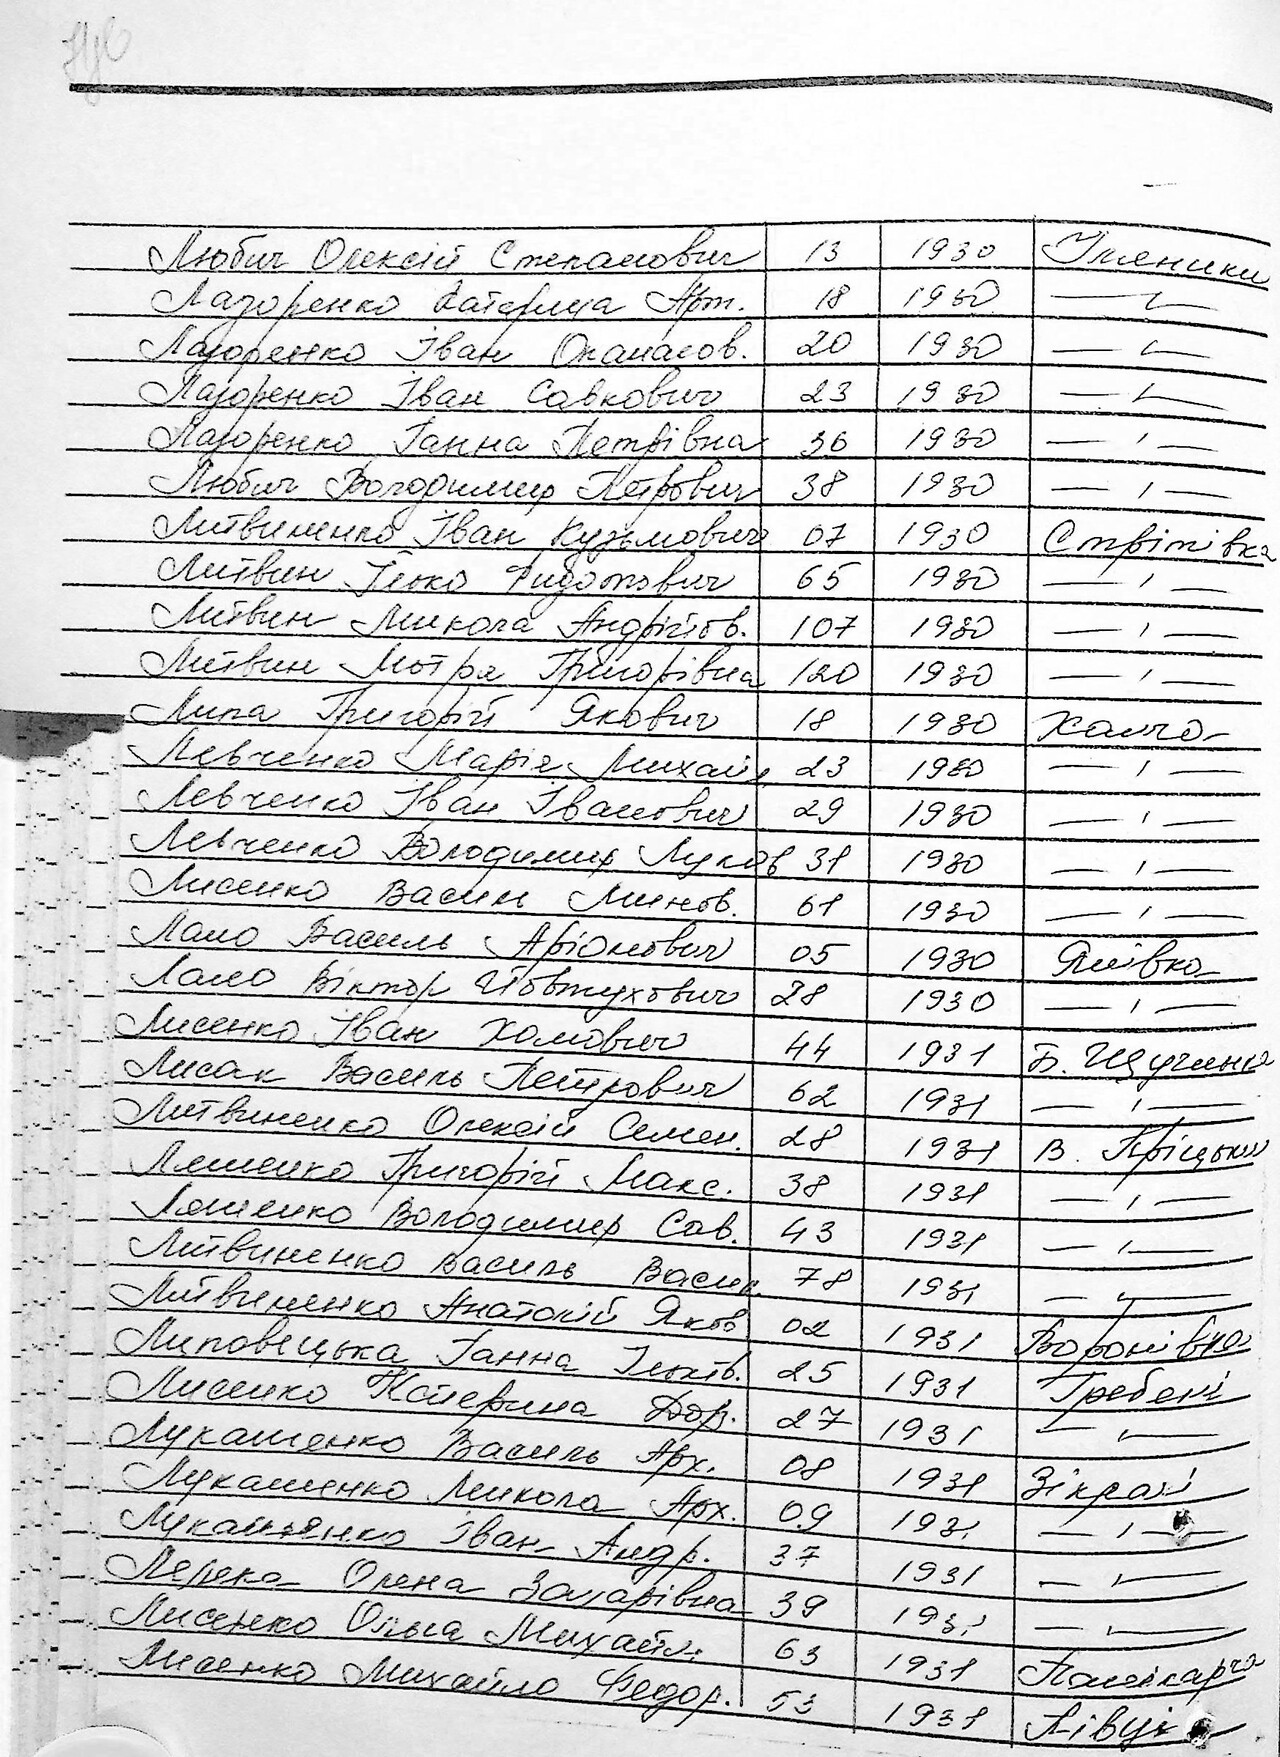 Любич Олексій Степанович 13 1930 Уляники
Лазоренко Катерина Арт. 18 1930 — " —
Лазоренко Іван Опанасов. 20 1930 — " —
Лазоренко Іван Савкович 23 1930 — " —
Лазоренко Ганна Петрівна 36 1930 — " —
Любич Володимир Петрович 38 1930 — " —
Литвиненко Іван Кузьмович 07 1930 Стрітівка
Литвин Ілько Федотович 65 1930 — " —
Литвин Микола Андрійов. 107 1930 — " —
Литвин Мотря Григорівна 120 1930 — " —
Липа Григорій Якович 18 1930 Халча
Левченко Марія Михайл. 23 1930 — " —
Левченко Іван Іванович 29 1930 — " —
Левченко Володимир Луков 31 1930 — " —
Лисенко Василь Минов. 61 1930 — " —
Лало Василь Аріонович 05 1930 Янівка
Лало Віктор Йовтухович 28 1930 — " —
Лисенко Іван Хомович 44 1931 Б. Щучинка
Лисак Василь Петрович 62 1931 — " —
Литвиненко Олексій Семен. 28 1931 В. Пріцьки
Ляшенко Григорій Макс. 38 1931 — " —
Ляшенко Володимир Сав. 43 1931 — " —
Литвиненко Василь Васил. 78 1931 — " —
Литвиненко Анатолій Яков 02 1931 Воронівка
Липовецька Ганна Ільків. 25 1931 Гребені
Лисенко Катерина Дор. 27 1931 — " —
Лукашенко Василь Арх. 08 1931 Зікрачі
Лукашенко Микола Арх. 09 1931 — " —
Лукашенко Іван Андр. 37 1931 — " —
Лерека Олена Захарівна 39 1931 — " —
Лисенко Ольга Михайл. 63 1931 Панікарча
Лисенко Михайло Федор. 53 1931 Півці